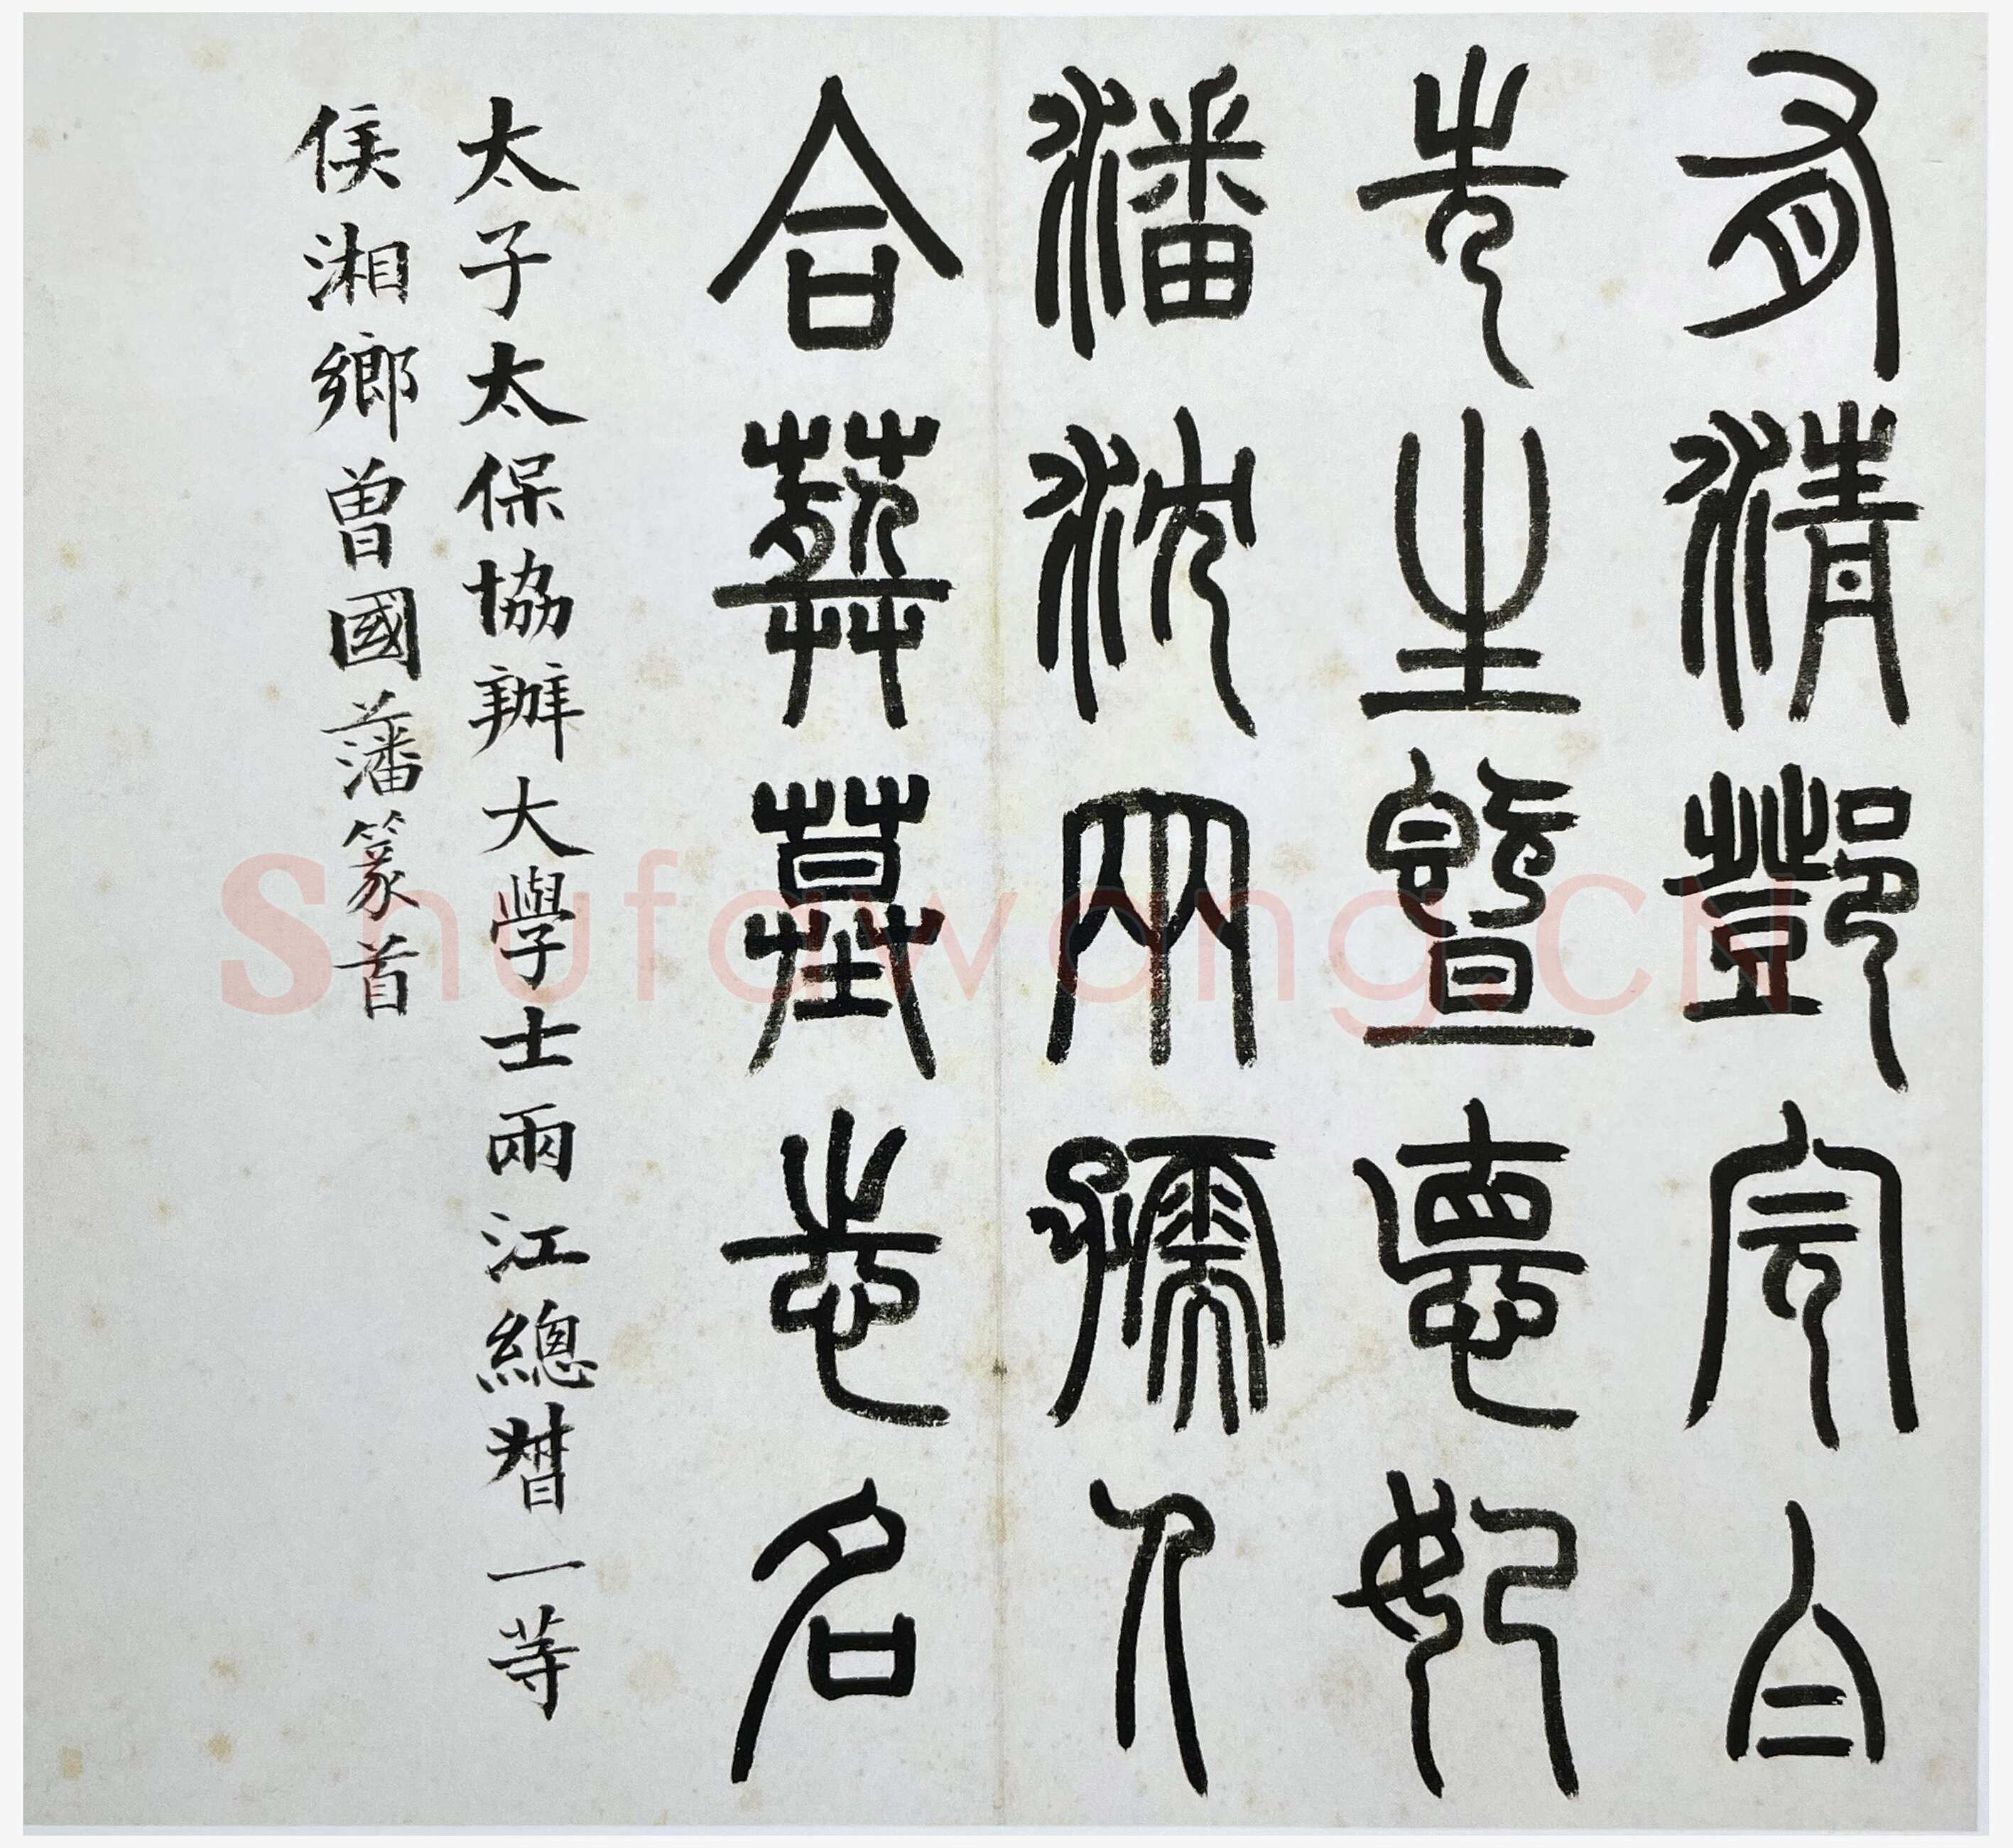 有清鄧完白
先生暨悳妃
潘沈兩孺人
合葬墓志名
太子太保協辦大學士兩江總督一等
侯湘鄉曾國藩篆首
Shufawang.CN